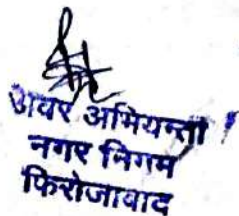 अवर अभियन्ता
नगर निगम
फिरोजाबाद